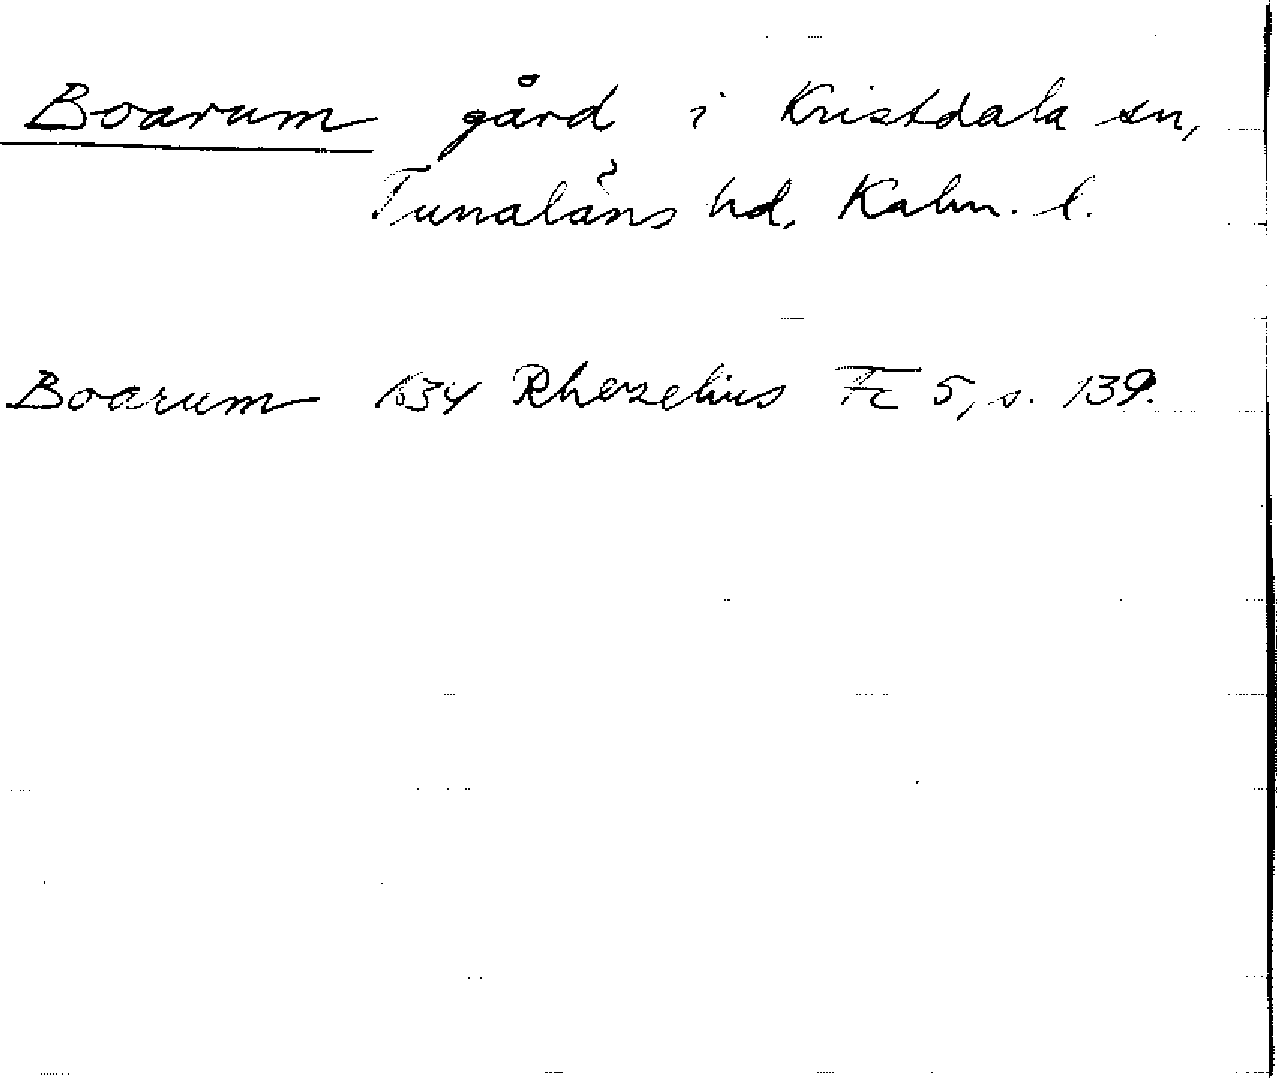 Boarum gård i Kristdala sn,
Tunaläns hd, Kalm. l.
Boarum 1634 Rhezelius Fc 5, s. 139.